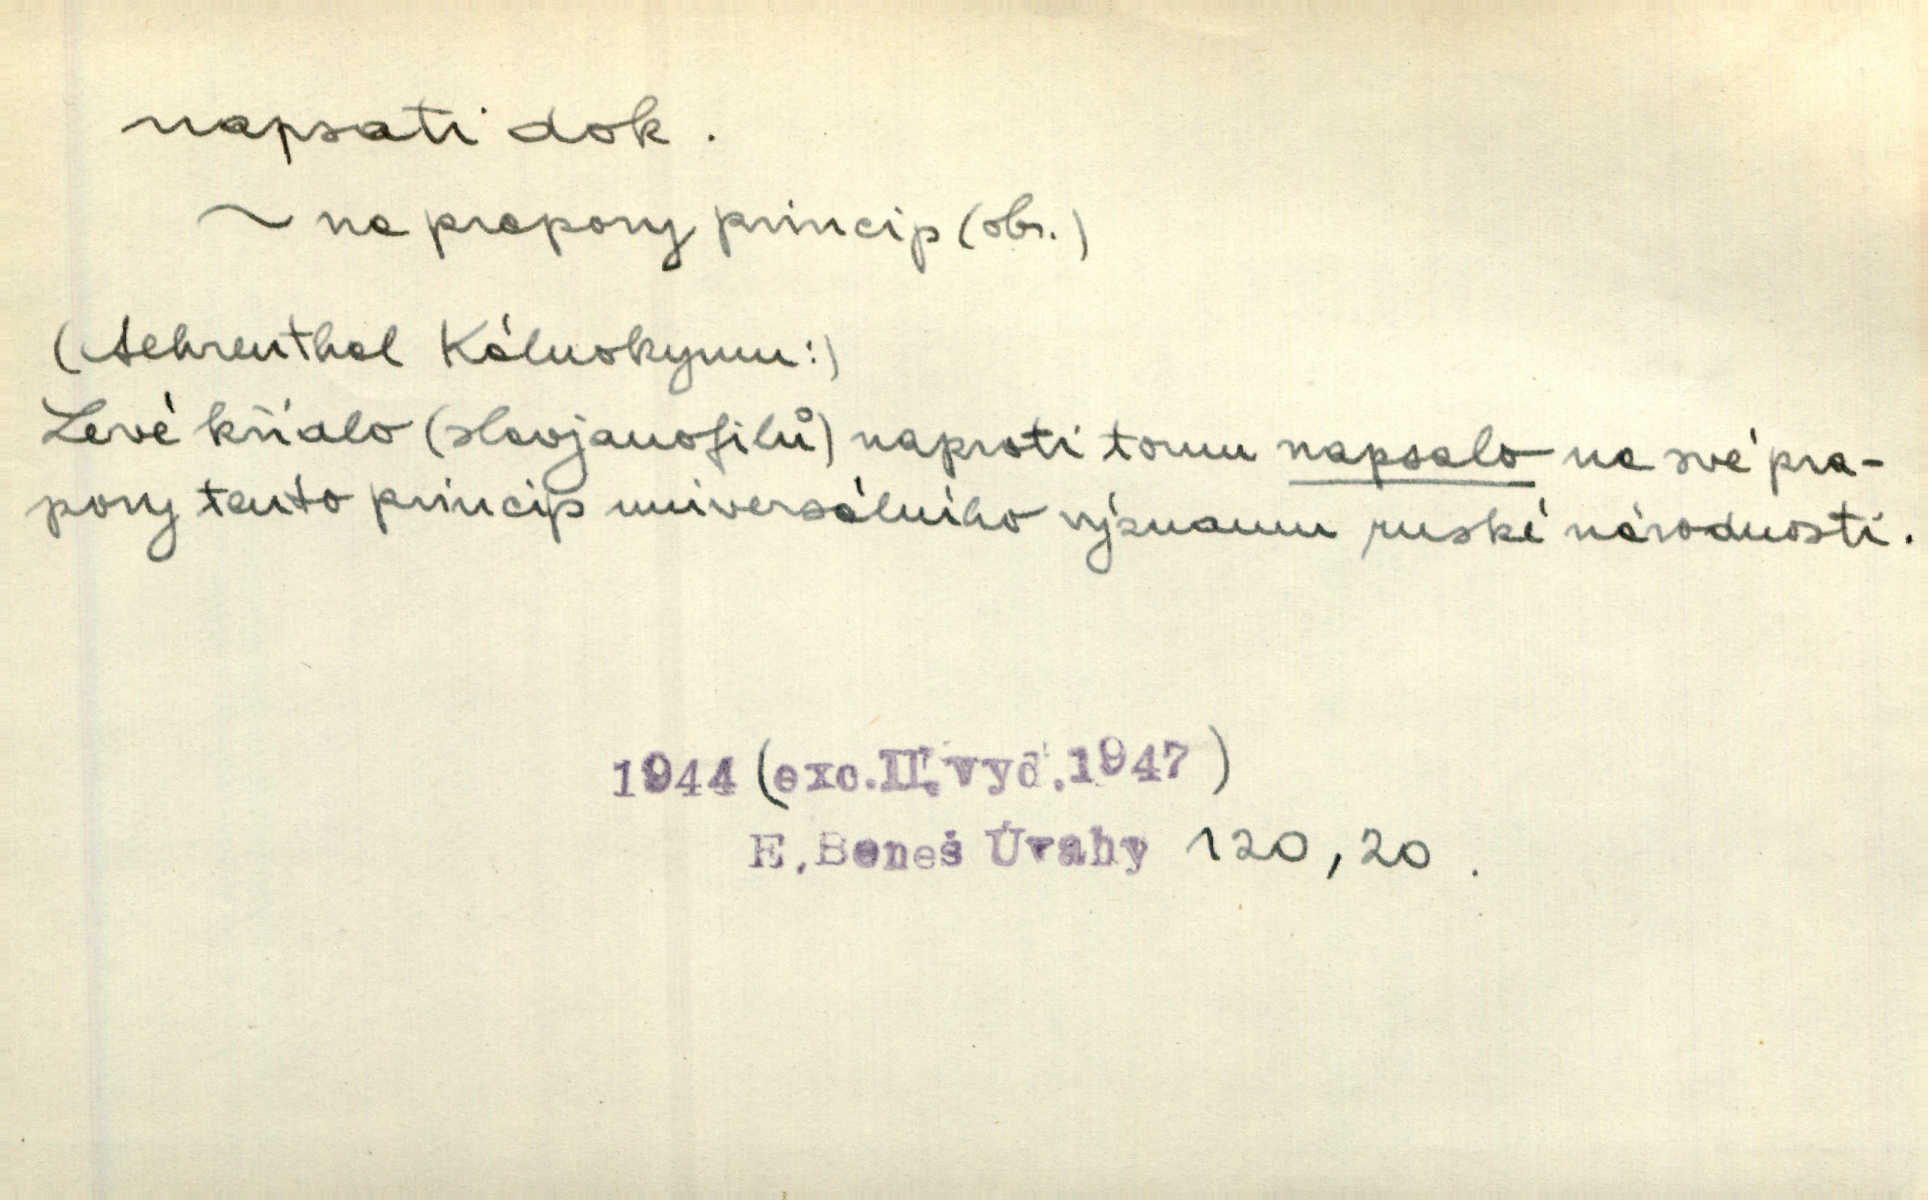 napsati dok.
~ na prapory princip (obr.)
(Aehrenthal Kálnokymu:)
Levé křídlo (slavjanofilů) naproti tomu napsalo na své pra-
pory tento princip universálního významu ruské národnosti.
1944 (exc.II.vyd.1947)
E.Beneš Úvahy 120,20.